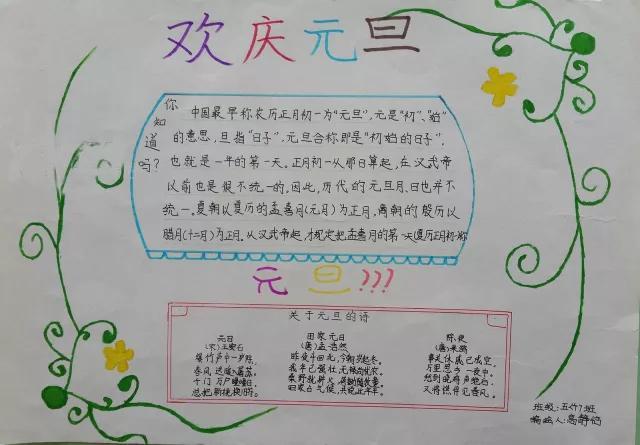 欢庆元旦
你知道吗?
中国最早称农历正月初一为“元旦”,元是“初”、“始”
的意思,旦指“日子”,元旦合称即是“初始的日子”,
也就是一年的第一天。正月初一从那日算起,在汉武帝
以前也是很不统一的。因此,历代的元旦月、日也并不
统一。夏朝以夏历的孟喜月(元月)为正月,商朝的殷历以
腊月(十二月)为正月。从汉武帝起,才规定把孟喜月的第一天(夏历正月初一)称
元旦???
关于元旦的诗
元日
(宋)王安石
爆竹声中一岁除,
春风送暖入屠苏。
千门万户曈曈日,
总把新桃换旧符。
田家元日
(唐)孟浩然
昨夜斗回北,今朝岁起东。
我年已强壮,无禄尚忧农。
桑野就耕父,荷锄随牧童。
田家占气候,共说此年丰。
除夜
(唐)来鹄
事关休戚已成空,
万里思一夜中。
愁到晓鸡声绝后,
又将憔悴见春风。
班级:五(4)班
编画人:高静怡